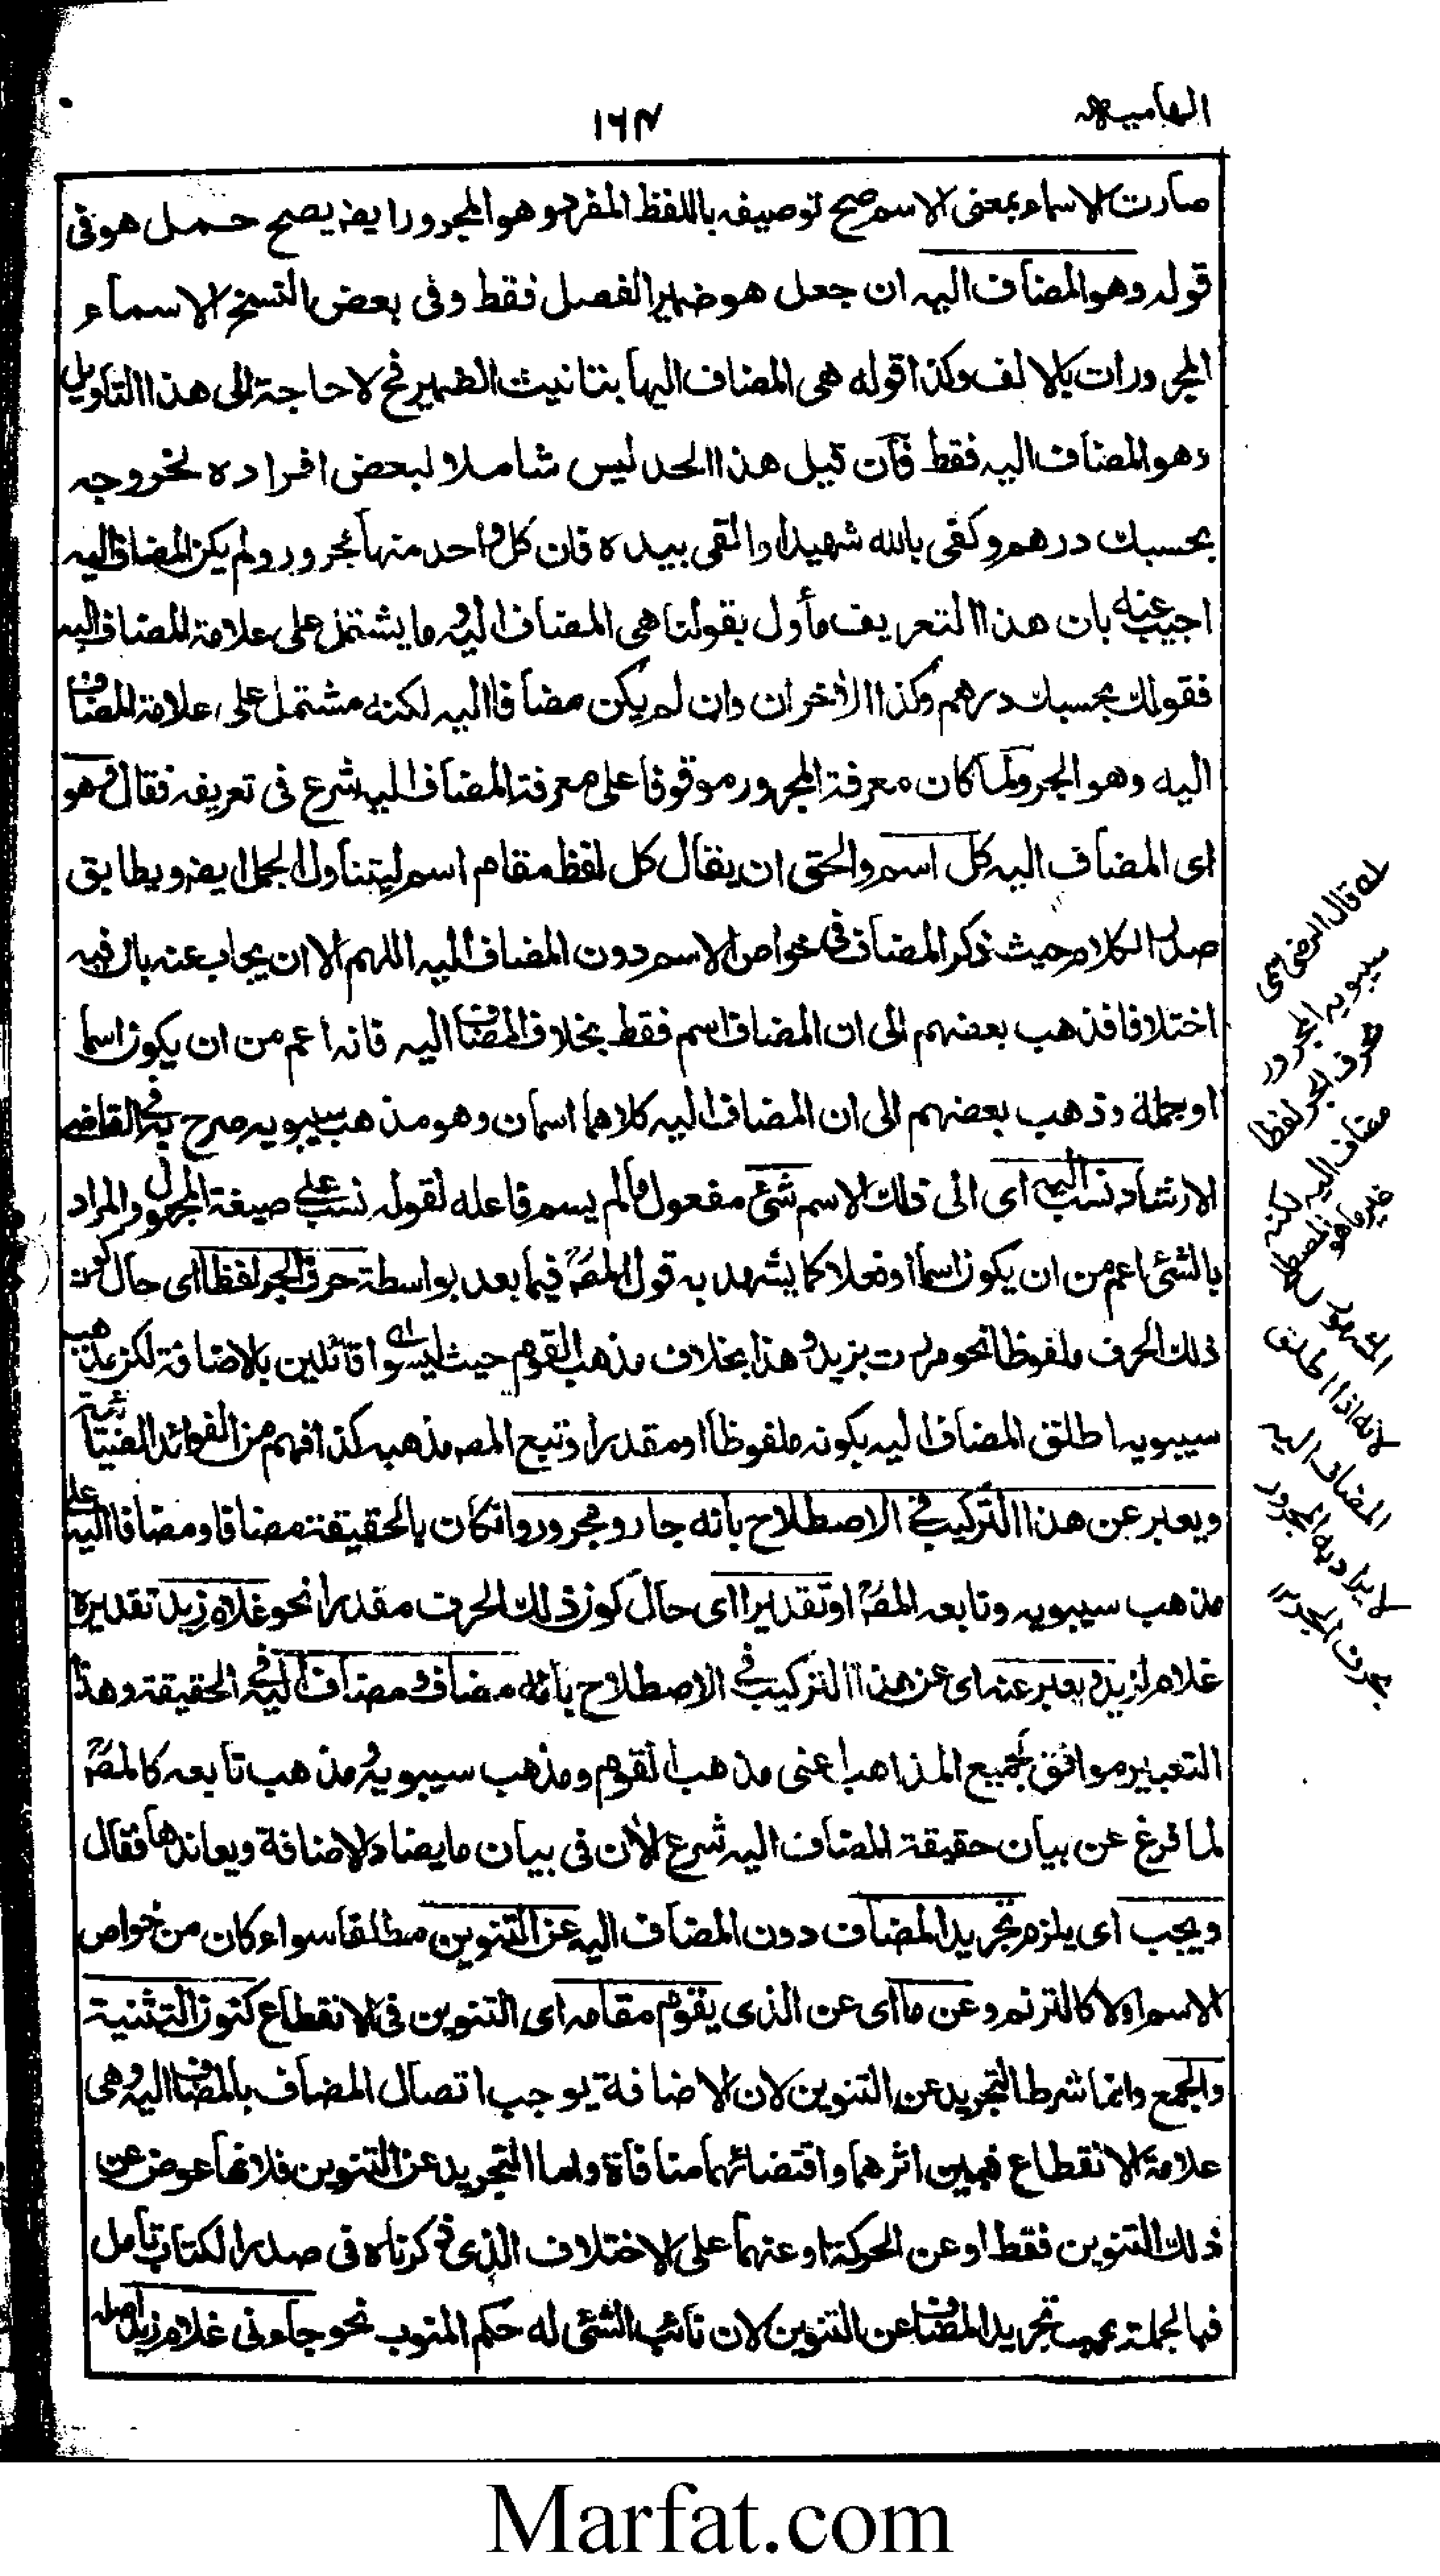 الهامیه
۱۶۴
صارت الاسماء بمعنی الاسم صح توصیفه باللفظ المفرد وهو المجرور ایضا یصح حمل هو فی
قوله وهو المضاف الیه ان جعل هو ضمیر الفصل فقط وفی بعض النسخ الاسماء
المجرورات بالالف وکذا قوله هی المضاف الیها بتانیث الضمیر فح لا حاجة الی هذا التاویل
وهو المضاف الیه فقط فان قیل هذا الحد لیس شاملا لبعض افراده لخروجه
بحسبك درهم وکفی بالله شهیدا والقی بیده فان کل واحد منها مجرور ولم یکن المضاف الیه
اجیب عنه بان هذا التعریف مأول بقولنا هی المضاف الیه وما یشتمل علی علامة المضاف الیه
فقولك بحسبك درهم وکذا الأخران وان لم یکن مضافا الیه لکنه مشتمل علی علامة المضاف
الیه وهو الجر ولما کان معرفة المجرور موقوفا علی معرفة المضاف الیه شرع فی تعریفه فقال وهو
ای المضاف الیه کل اسم والحق ان یقال کل لفظ مقام اسم لیتناول الجمل ایضا ویطابق
صدر الکلام حیث ذکر المضاف فی خواص الاسم دون المضاف الیه اللهم الا ان یجاب عنه بان فیه
اختلافا فذهب بعضهم الی ان المضاف اسم فقط بخلاف المضاف الیه فانه اعم من ان یکون اسما
او جملة وذهب بعضهم الی ان المضاف الیه کلاهما اسمان وهو مذهب سیبویه صرح به فی القاضی
الارشاد نسب الیه ای الی ذلك الاسم شئ مفعول مالم یسم فاعله لقوله نسب علی صیغة المجهول والمراد
بالشئ اعم من ان یکون اسما او فعلا کما یشهد به قول المصؒ فیما بعد بواسطة حرف الجر لفظا ای حال کون
ذلك الحرف ملفوظا نحو مررت بزید وهذا بخلاف مذهب القوم حیث لیسوا قائلین بالاضافة لکن مذهب
سیبویه اطلق المضاف الیه بکونه ملفوظا او مقدرا وتبع المصه مذهبه کذا فهم من الفوائد الضیائیة
ویعبر عن هذا الترکیب فی الاصطلاح بانه جار ومجرور وانکان بالحقیقة مضافا ومضافا الیه علی
مذهب سیبویه وتابعه المصؒ او تقدیرا ای حال کون ذلك الحرف مقدرا نحو غلام زید تقدیره
غلام لزید ویعبر عنه ای عن هذا الترکیب فی الاصطلاح بانه مضاف ومضاف الیه فی الحقیقة وهذا
التعبیر موافق لجمیع المذاهب اعنی مذهب القوم ومذهب سیبویه ومذهب تابعه کالمصؒ
لما فرغ عن بیان حقیقة المضاف الیه شرع الأن فی بیان ما یضاد الاضافة ویعاندها فقال
ویجب ای یلزم تجرید المضاف دون المضاف الیه عن التنوین مطلقا سواء کان من خواص
الاسم او لا کالترنم وعن ما ای عن الذی یقوم مقامه ای التنوین فی الانقطاع کنون التثنیة
والجمع وانما شرط التجرید عن التنوین لان الاضافة یوجب اتصال المضاف بالمضاف الیه وهی
علامة الانقطاع فبین اثرهما واقتضائهما منافاة واما التجرید عن التنوین فلانها عوض عن
ذلك التنوین فقط او عن الحرکة او عنهما علی الاختلاف الذی ذکرناه فی صدر الکتاب تأمل
فبالجملة یجب تجرید المضاف عن التنوین لان نائب الشئ له حکم المنوب نحو جاءنی غلام زید اصله
له قال الرضی سمی
سیبویه المجرور
بحرف الجر لفظا
مضاف الیه لکنه
خلاف ما هو
المشهور
لانه اذا اطلق
المضاف الیه
لا یراد به المجرور
بحرف الجر
Marfat.com